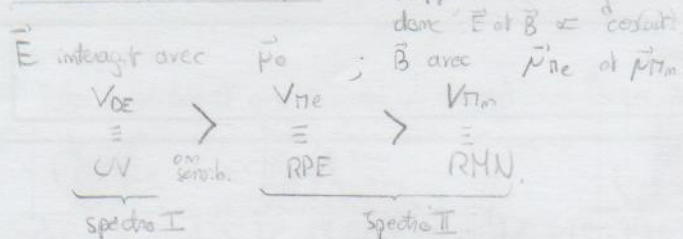 donc E⃗ et B⃗ ∝ cos(ωt)
E⃗ interagit avec μ⃗o ; B⃗ avec μ⃗Me et μ⃗Mm
VDE > VMe > VMm
≡ ≡ ≡
UV en sensib. RPE RMN.
spectro I spectro II